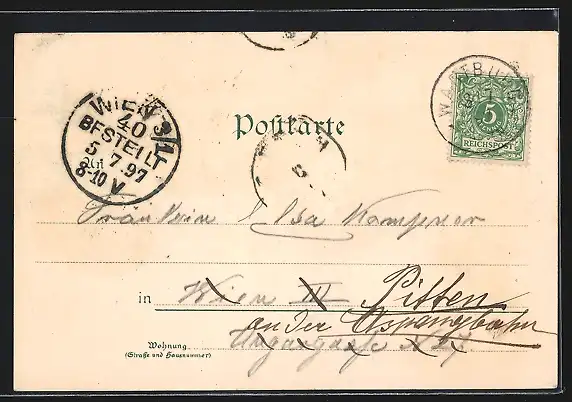 Postkarte
WIEN 3/1
40
BESTELLT
5 7.97
8-10 V
5
REICHSPOST
Fräulein Elsa
in Wien III Pitten
an der Aspangbahn
Ungargasse
Wohnung
(Straße und Hausnummer)